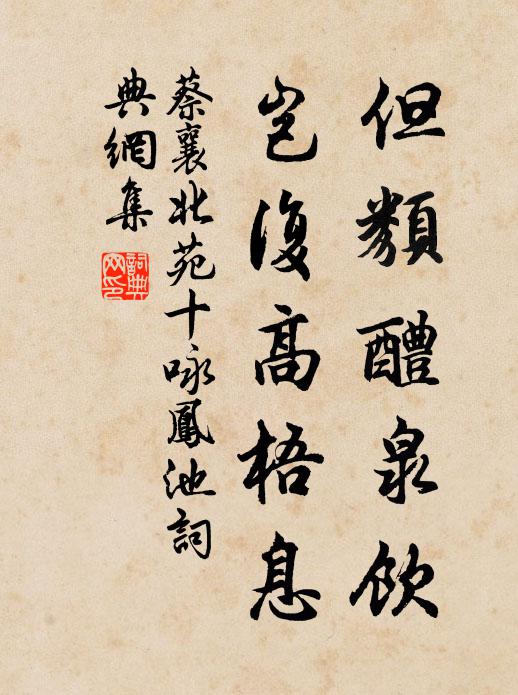 但類醴泉飲
豈復高梧息
蔡襄北苑十咏鳳池詞
典網集
詞典網印